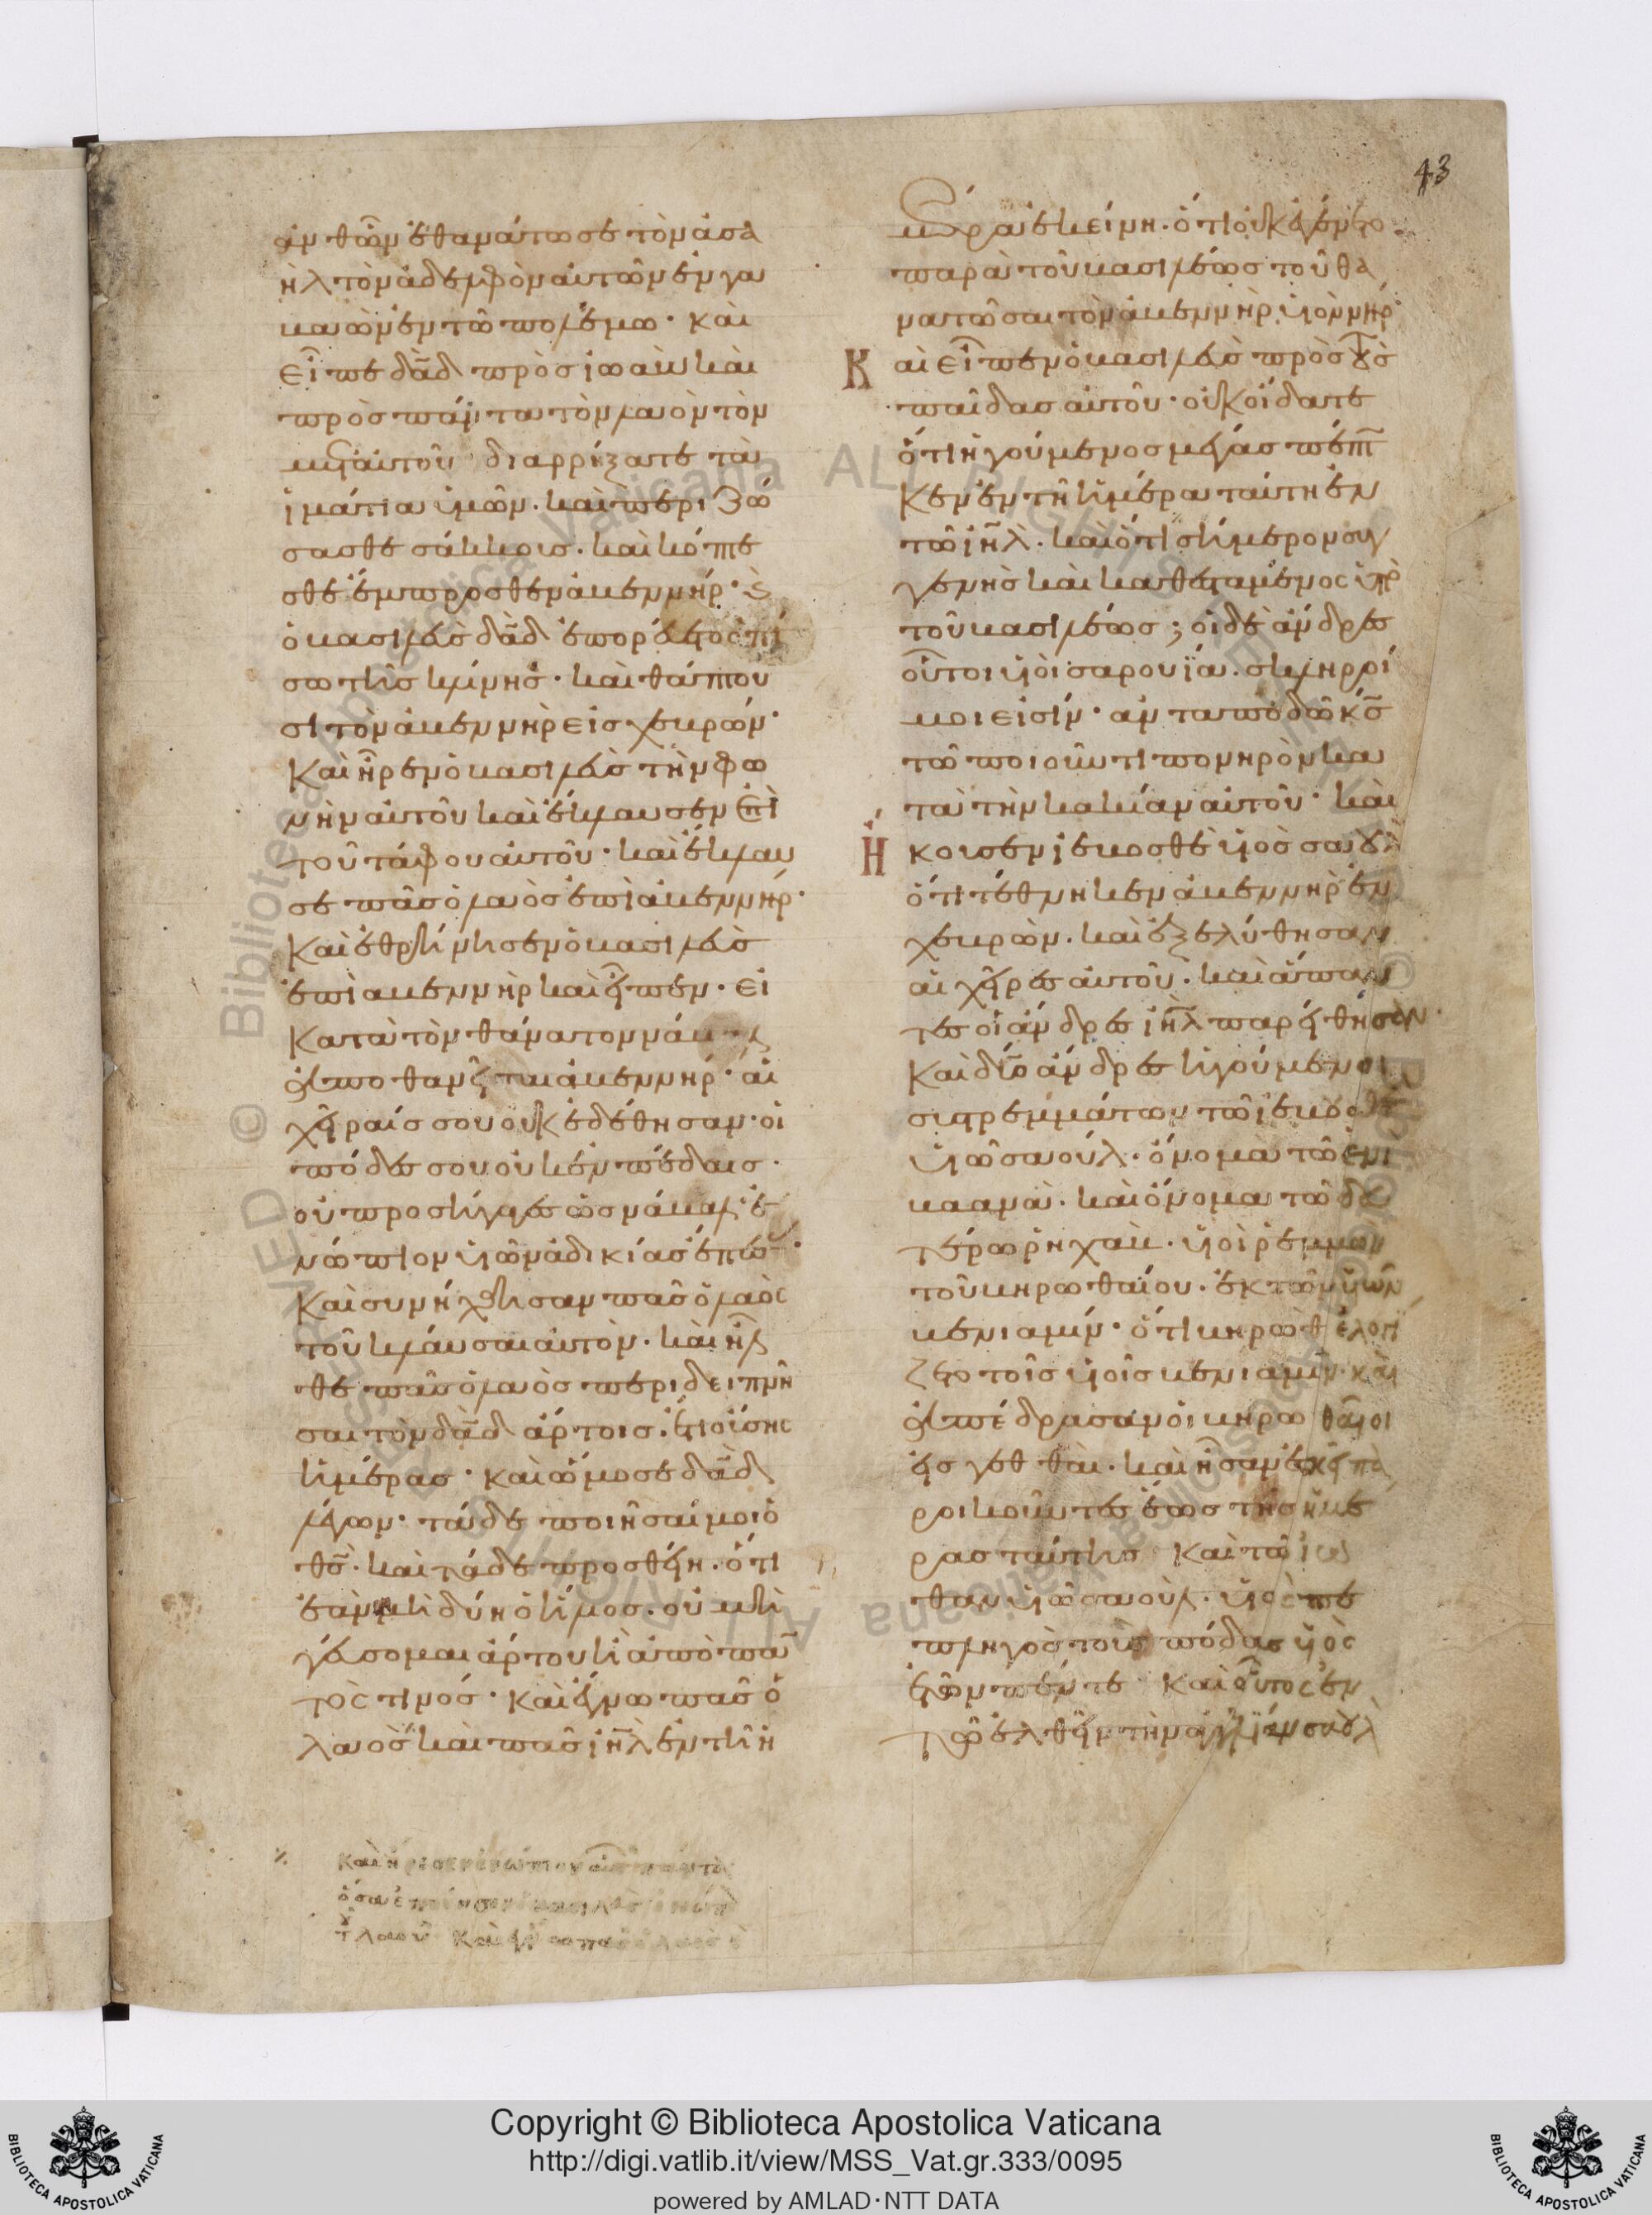 43
ἀνθῶν ἐθανάτωσε τὸν ἀσα
ὴλ τὸν ἀδελφὸν αὐτῶν ἐν γα
βαὼν ἐν τῶ πολέμω· καὶ
εἶπε δᾱδ πρὸς ἰωὰβ καὶ
πρὸς πάντα τὸν λαὸν τὸν
μετ αὐτοῦ διαρρήξατε τὰ
ἱμάτια ὑμῶν. καὶ περιζώ
σασθε σάκκοις. καὶ κόπτε
σθε ἔμπροσθεν ἀβεννήρ· καὶ
ὁ βασιλεὺς δᾱδ ἐπορεύετο ὀπί
σω τῆς κλίνης· καὶ θάπτου
σι τὸν ἀβεννὴρ εἰς χεβρών·
Καὶ ἦρεν ὁ βασιλεὺς τὴν φω
νὴν αὐτοῦ καὶ ἔκλαυσεν ἐπὶ
τοῦ τάφου αὐτοῦ· καὶ ἔκλαυ
σε πᾶς ὁ λαὸς ἐπὶ ἀβεννήρ·
Καὶ ἐθρήνησεν ὁ βασιλεὺς
ἐπὶ αβεννὴρ καὶ εἶπεν· εἰ
κατὰ τὸν θάνατον νάβαλ
ἀποθανεῖται ἀβεννήρ· αἱ
χεῖραίς σου οὐκ ἐδέθησαν· οἱ
πόδές σου οὐκ ἐν πέδαις·
οὐ προσήγαγες ὡς νάβαλ ἐ
νώπιον υἱῶν ἀδικίας ἔπεσ
Καὶ συνήχθησαν πᾶς ὁ λαὸς
τοῦ κλαῦσαι αὐτὸν. καὶ ἦλ
θε πᾶς ὁ λαὸς περιδειπνῆ
σαι τὸν δᾱδ ἄρτοις. ἔτι οὔσης
ἡμέρας· καὶ ὤμοσε δᾱδ
λέγων· τάδε ποιῆσαί μοι ὁ
θ̄ς. καὶ τάδε προσθείη. ὅτι
ἐὰν μὴ δύη ὁ ἥλιος. οὐ μὴ
γεύσομαι ἄρτου ἢ ἀπὸ παν
τός τινος· Καὶ ἔγνω πᾶς ὁ
λαὸς καὶ πᾶς ιηλ ἐν τῆ ἡ
Καὶ ἤρεσεν ἐνώπιον αὐτῶν πάντα
ὅσα ἐποίησεν ὁ βασιλεὺς ἐνώπι
τοῦ λαοῦ Καὶ ἔγνω πᾶς ὁ λαὸς
μέρα ἐκείνη. ὅτι οὐκ ἐγένετο
παρὰ τοῦ βασιλέως τοῦ θα
νατῶσαι τὸν ἀβεννὴρ υἱὸν νήρ
Καὶ εἶπεν ὁ βασιλεὺς πρὸς τοὺς
παῖδας αὐτοῦ· οὐκ οἴδατε
ὅτι ἡγούμενος μέγας πέπτω
κεν ἐν τῆ ἡμέρα ταύτη ἐν
τῶ ιηλ. καὶ ὅτι σήμερον συγ
γενὴς καὶ καθεσταμένος ὑπὸ
τοῦ βασιλέως; οἱ δὲ ἄνδρες
οὗτοι υἱοὶ σαρουΐα. σκληροί
μοι εἰσίν· ἀνταποδῶ κ̄ς
τῶ ποιοῦντι πονηρὸν κα
τὰ τὴν κακίαν αὐτοῦ· καὶ
Ἤκουσεν ἰεβοσθὲ υἱὸς σαοὺλ
ὅτι τέθνηκεν ἀβεννὴρ ἐν
χεβρὼν. καὶ ἐξελύθησαν
αἱ χεῖρες αὐτοῦ. καὶ ἅπαν
τες οἱ ἄνδρες ιηλ παρείθησαν·
Καὶ δύο ἄνδρες ἡγούμενοι
συστρεμμάτων τῶ ἰεβοσθὲ
υἱῶ σαούλ. ὄνομα τῶ ἑνὶ
βααναὰ. καὶ ὄνομα τῶ δευ
τέρω ρηχαὺ. υἱοὶ ρεμμὼν
τοῦ βηρωθαίου. ἐκ τῶν υἱῶν
βενιαμίν· ὅτι βηρὼθ ἐλογί
ζετο τοῖς υἱοῖς βενιαμίν· καὶ
ἀπέδρασαν οἱ βηρωθαῖοι
εἰς γεθθαὶ. καὶ ἦσαν ἐκεῖ πα
ροικοῦντες ἕως τῆς ἡμέ
ρας ταύτης Καὶ τῶ ἰωνα
θαν υἱῶ σαούλ. υἱὸς πε
πληγὸς τοὺς πόδας υἱὸς
ἐτῶν πέντε Καὶ οὗτος ἐν
τῶ ἐλθεῖν τὴν ἀγγελίαν σαοὺλ
Copyright © Biblioteca Apostolica Vaticana
http://digi.vatlib.it/view/MSS_Vat.gr.333/0095
powered by AMLAD·NTT DATA
BIBLIOTECA APOSTOLICA VATICANA
BIBLIOTECA APOSTOLICA VATICANA